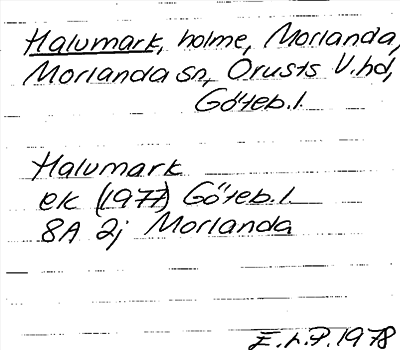 Halvmark, holme, Morlanda,
Morlanda sn, Orusts V. hd,
Göteb. l.
Halvmark
ek (1977) Göteb. l.
8A 2j Morlanda
E. L. P. 1978